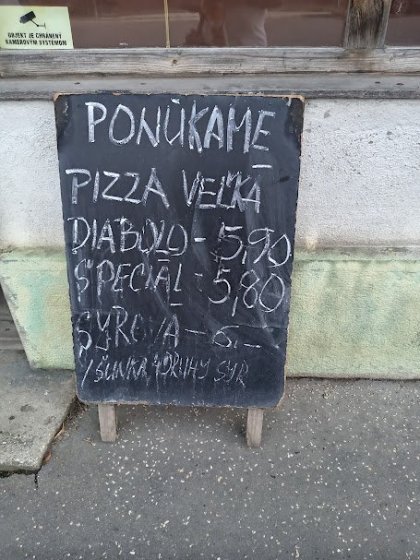 OBJEKT JE CHRÁNENÝ
KAMEROVÝM SYSTÉMOM
PONÚKAME
PIZZA VEĽKÁ
DIABOLO - 5,90
ŠPECIÁL : 5,80
SYROVÁ - 6.-
/ ŠUNKA, 4 DRUHY SYR